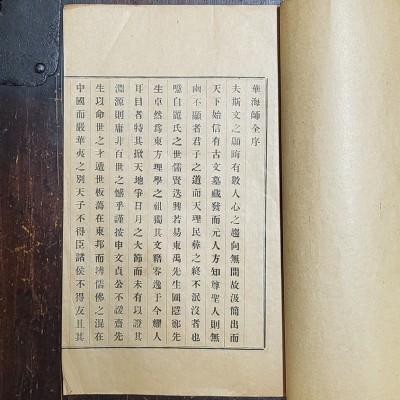 華海師全序
夫斯文之顯晦有數人心之趨向無間故汲簡出而
天下始信有古文墓藏發而元人方知尊聖人則無
幽不顯者君子之道而天理民彝之終不泯沒者也
噫自麗氏之世儒賢迭興若易東禹先生圃隱鄭先
生卓然爲東方理學之祖獨其文籍零逸于今耀人
耳目者特其掀天地爭日月之大節而未有以證其
淵源則庸非百世之憾乎謹按申文貞公不諼齋先
生以命世之才遭世板蕩在東邦而儒佛之混在
中國而嚴華夷之別天子不得臣諸侯不得友且其